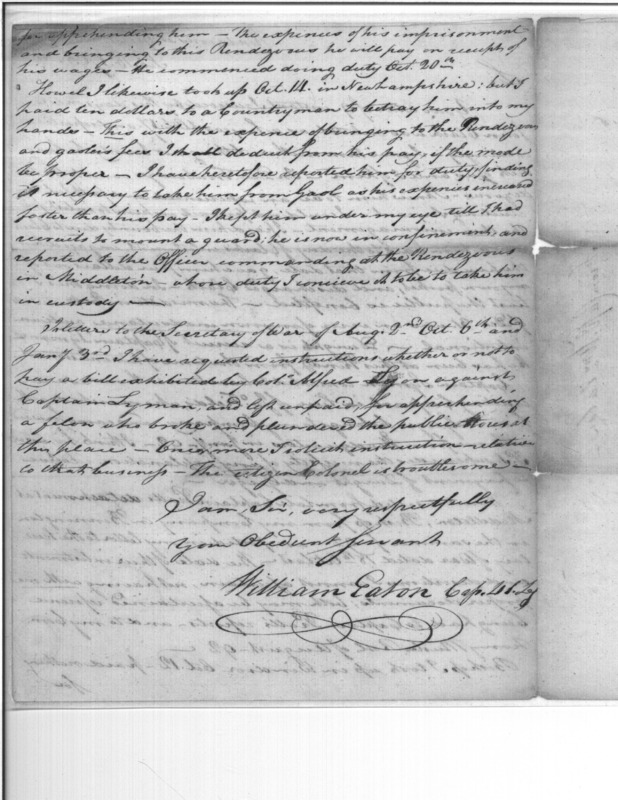 for apprehending him — The expences of his imprisonment
and bringing to this Rendezvous he will pay on receipt of
his wages — He commenced doing duty Oct. 20th
Howel I likewise took up Oct. 14. in Newhampshire: but I
paid ten dollars, to a Countryman to betray him into my
hands — This with the expence of bringing to the Rendezvous
and gaolers fees I shall deduct from his pay, if the mode
be proper — I have heretofore reported him for duty, finding
it necessary to take him from Gaol as his expences increased
faster than his pay — I kept him under my eye till I had
recruits to mount a guard; he is now in confinement, and
reported to the Officer commanding at the Rendezvous
in Middleton — whose duty I conceive it to be to take him
in custody —
In letters to the Secretary of War of Aug. 2nd Oct. 6th and
Jany. 3rd I have requested instructions whether or not to
pay a bill exhibited by Col. Alfred Lyon against
Captain Lyman, and left unpaid, for apprehending
a felon who broke and plundered the public Stores at
this place — Once more I solicit instruction relative
to that business — The citizen Colonel is troublesome —
I am, Sir, very respectfully
your Obedient Servant
William Eaton Cap. 4 S. Leg